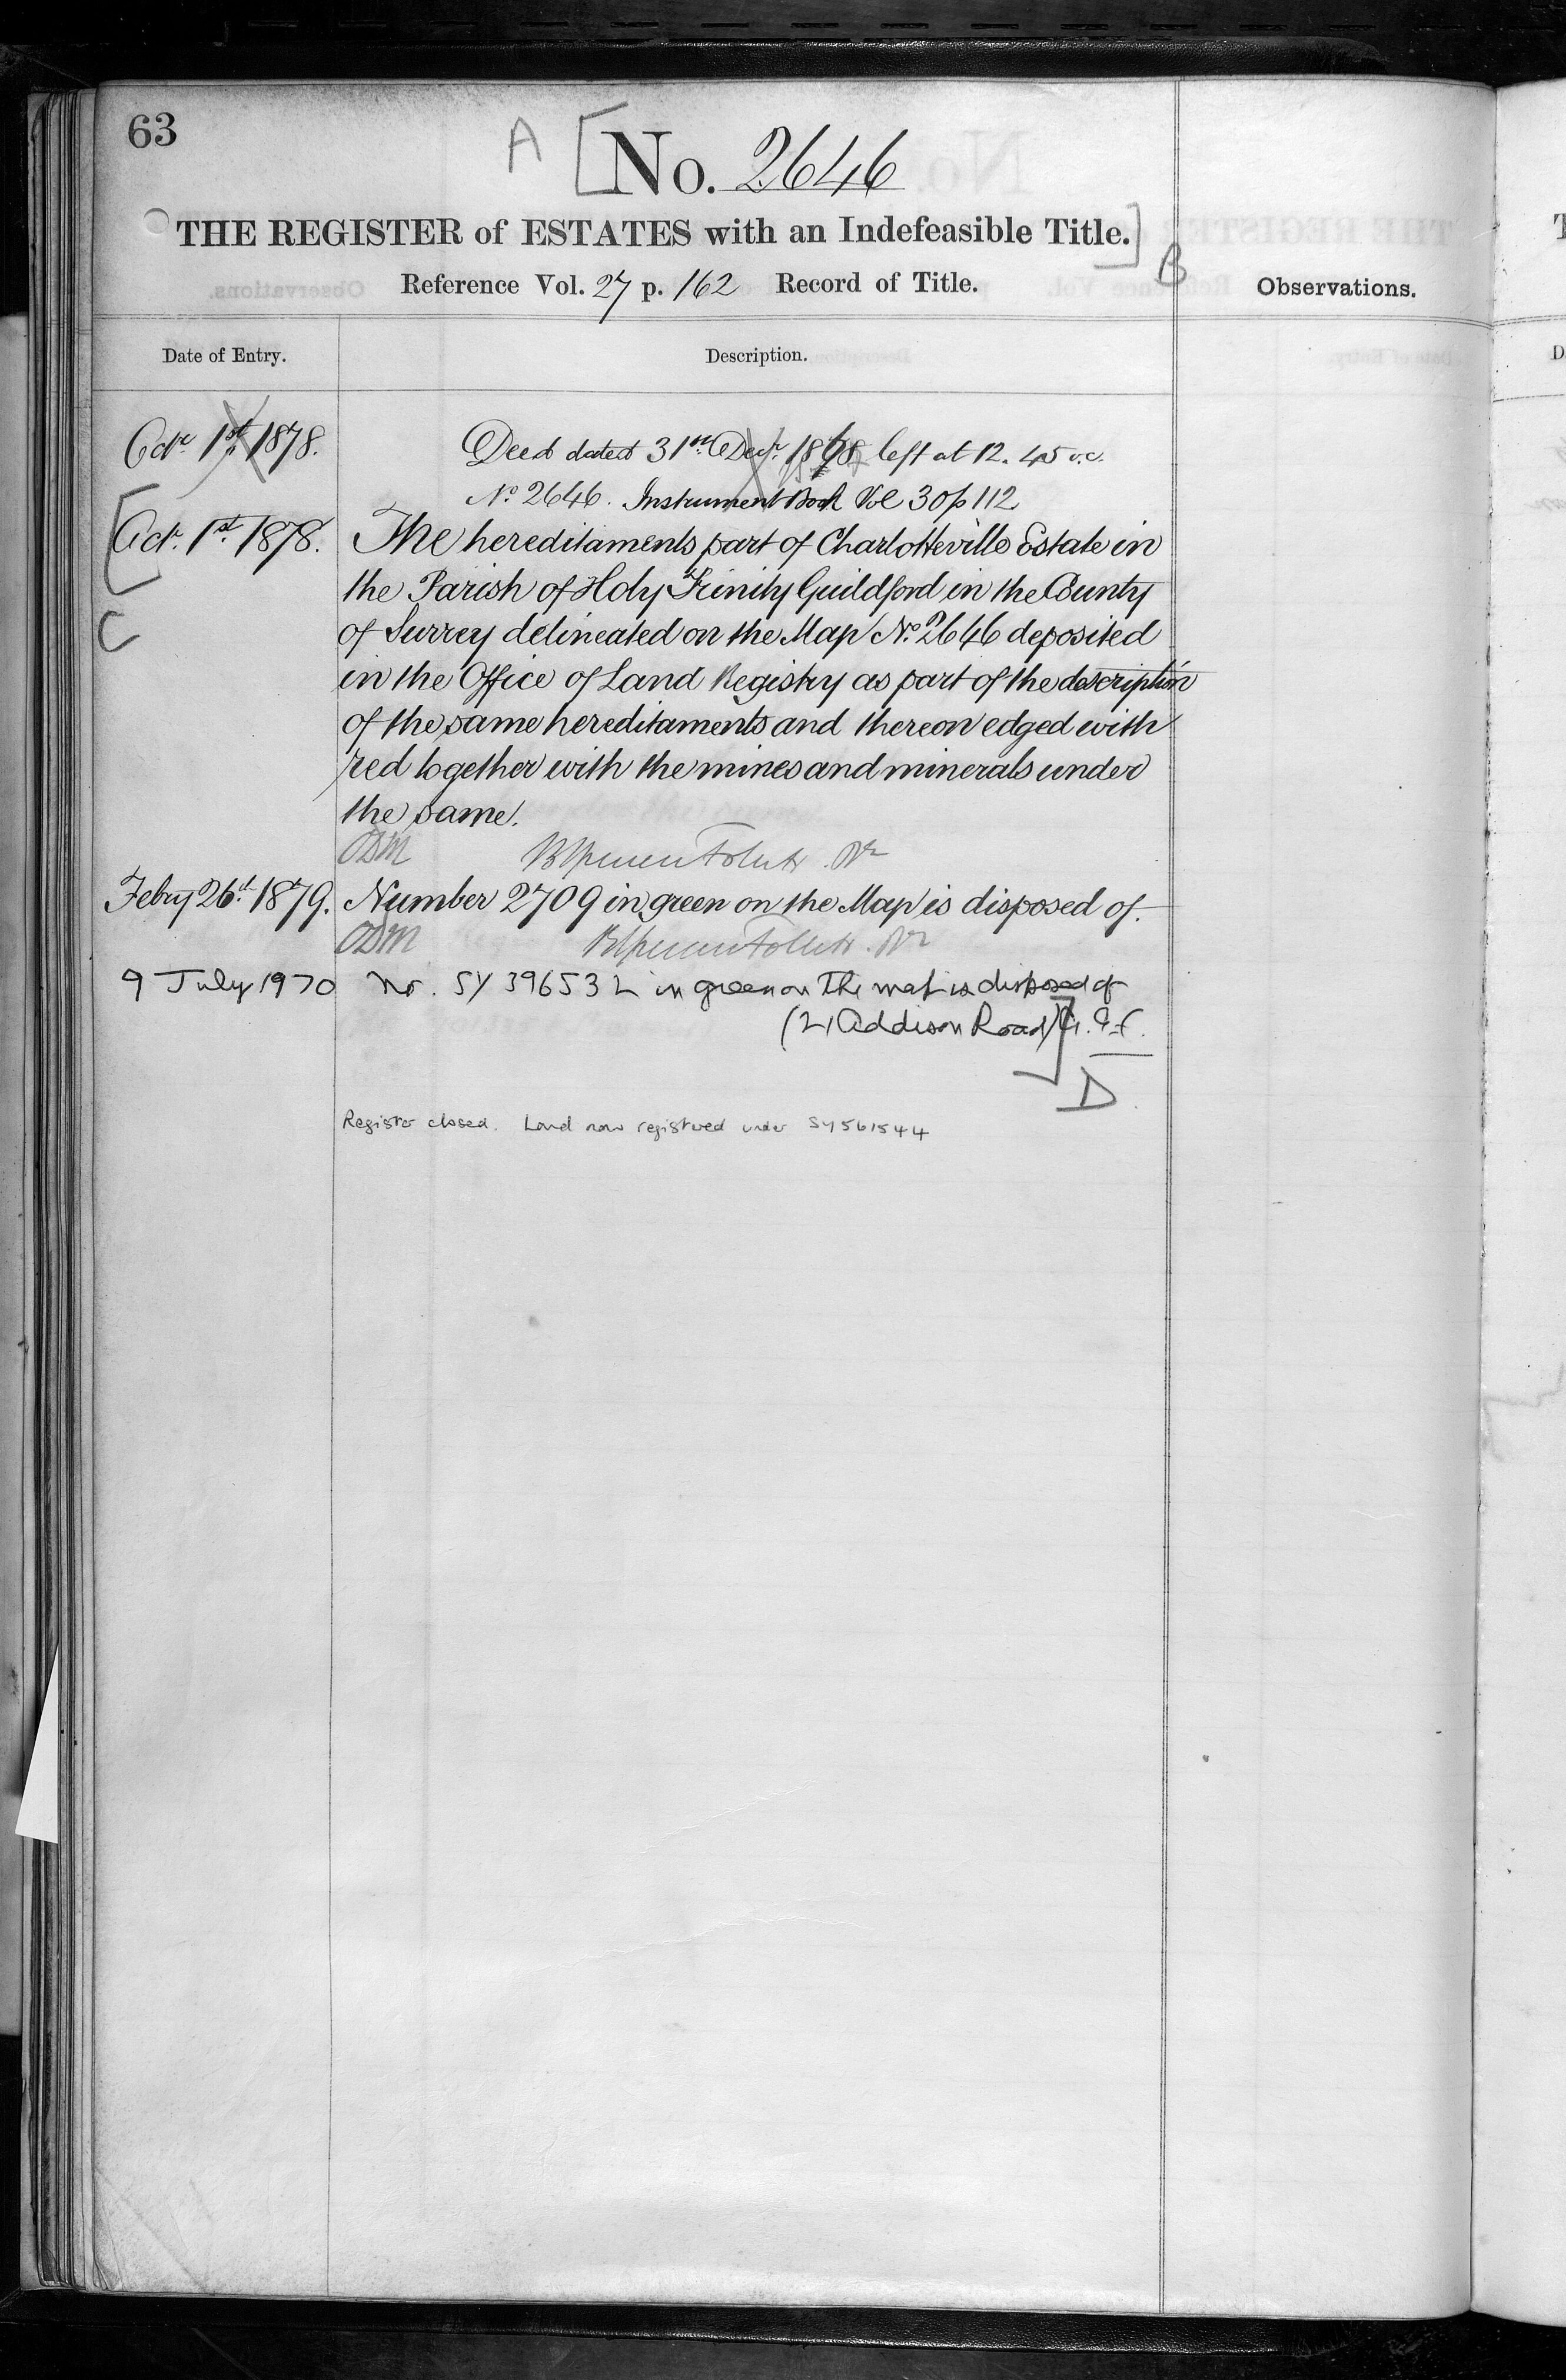 63
A [No. 2646
THE REGISTER of ESTATES with an Indefeasible Title.]
B
Reference Vol. 27 p. 162 Record of Title.
Observations.
Date of Entry.
Description.
Octr. 1st. 1878.
Deed dated 31st. Decr. 1868 left at 12. 45 o.c.
No 2646. Instrument Book Vol 30 p 112
[Oct. 1st. 1878.
The hereditaments part of Charlotteville Estate in
the Parish of Holy Trinity Guildford in the County
C
of Surrey delineated on the Map No. 2646 deposited
in the Office of Land Registry as part of the description
of the same hereditaments and thereon edged with
red together with the mines and minerals under
the same.
ODM
Febry 26th. 1879.
Number 2709 in green on the Map is disposed of.
ODM
9 July 1970
No. SY 396532 in green on the map is disposed of
(21 Addison Road)]
D
Register closed. Land now registered under SY561544